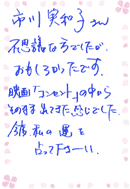 市川実和子さん
不思議な方でしたが、
おもしろかったです。
映画「コンセント」の中から
そのまま出てきた感じでした。
今度、私の運を
占って下さーい。